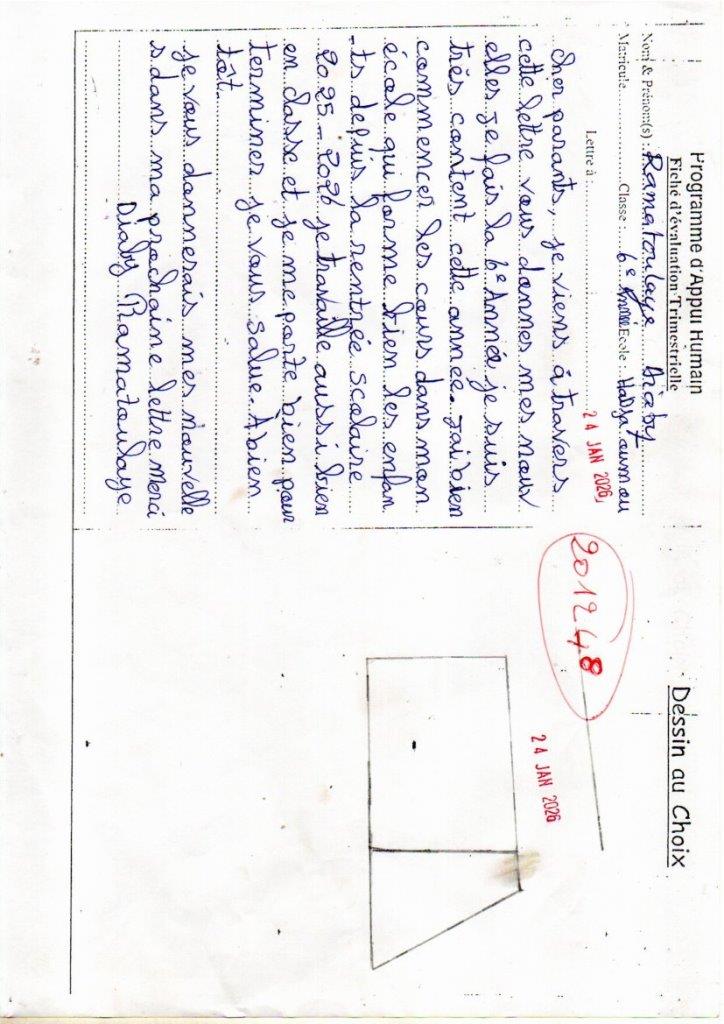 Programme d'Appui Humain
Fiche d'évaluation Trimestrielle
Nom & Prénom(s) : Ramatoulaye Diaby
Matricule.......... Classe : 6e Année Ecole : Hadja oumou
24 JAN 2026
Lettre à :
cher parants, je viens à travers
cette lettre vous donnes mes nouv
elles je fais la 6e Année je suis
très content cette année. J'ai bien
commencer les cours dans mon
école qui forme bien les enfan
ts depuis la rentrée scolaire
2025-2026 je travaille aussi bien
en classe et je me porte bien pour
terminer je vous salue. A bien
tôt.
je vous donnerais mes nouvelle
s dans ma prochaine lettre Merci
Diaby Ramatoulaye
Dessin au Choix
201248
24 JAN 2026